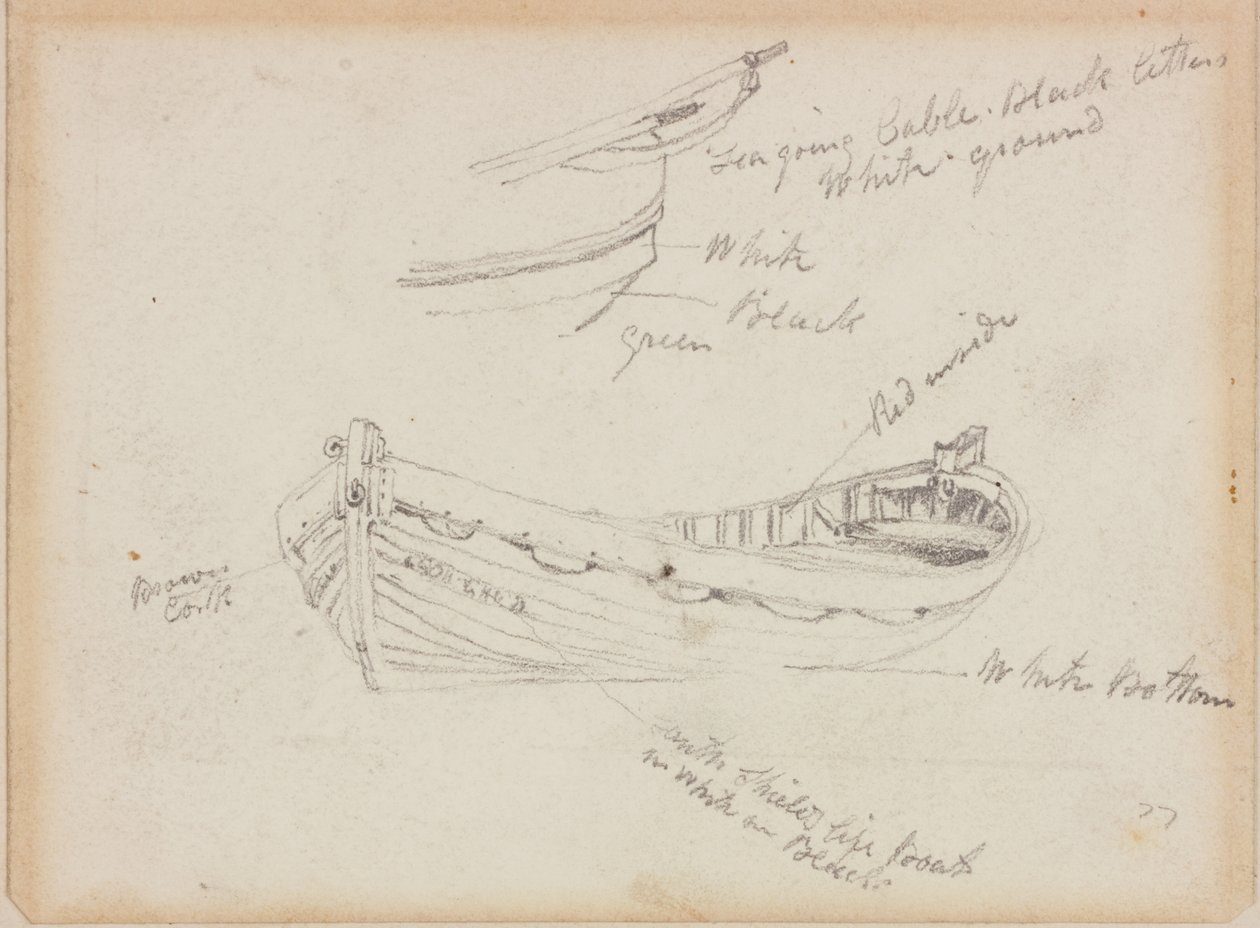 Sea going Cable. Black letters
White ground
White
Black
green
Red inside
Brown
Cork
White Bottom
South Shields Life Boat
in White on
Black
77